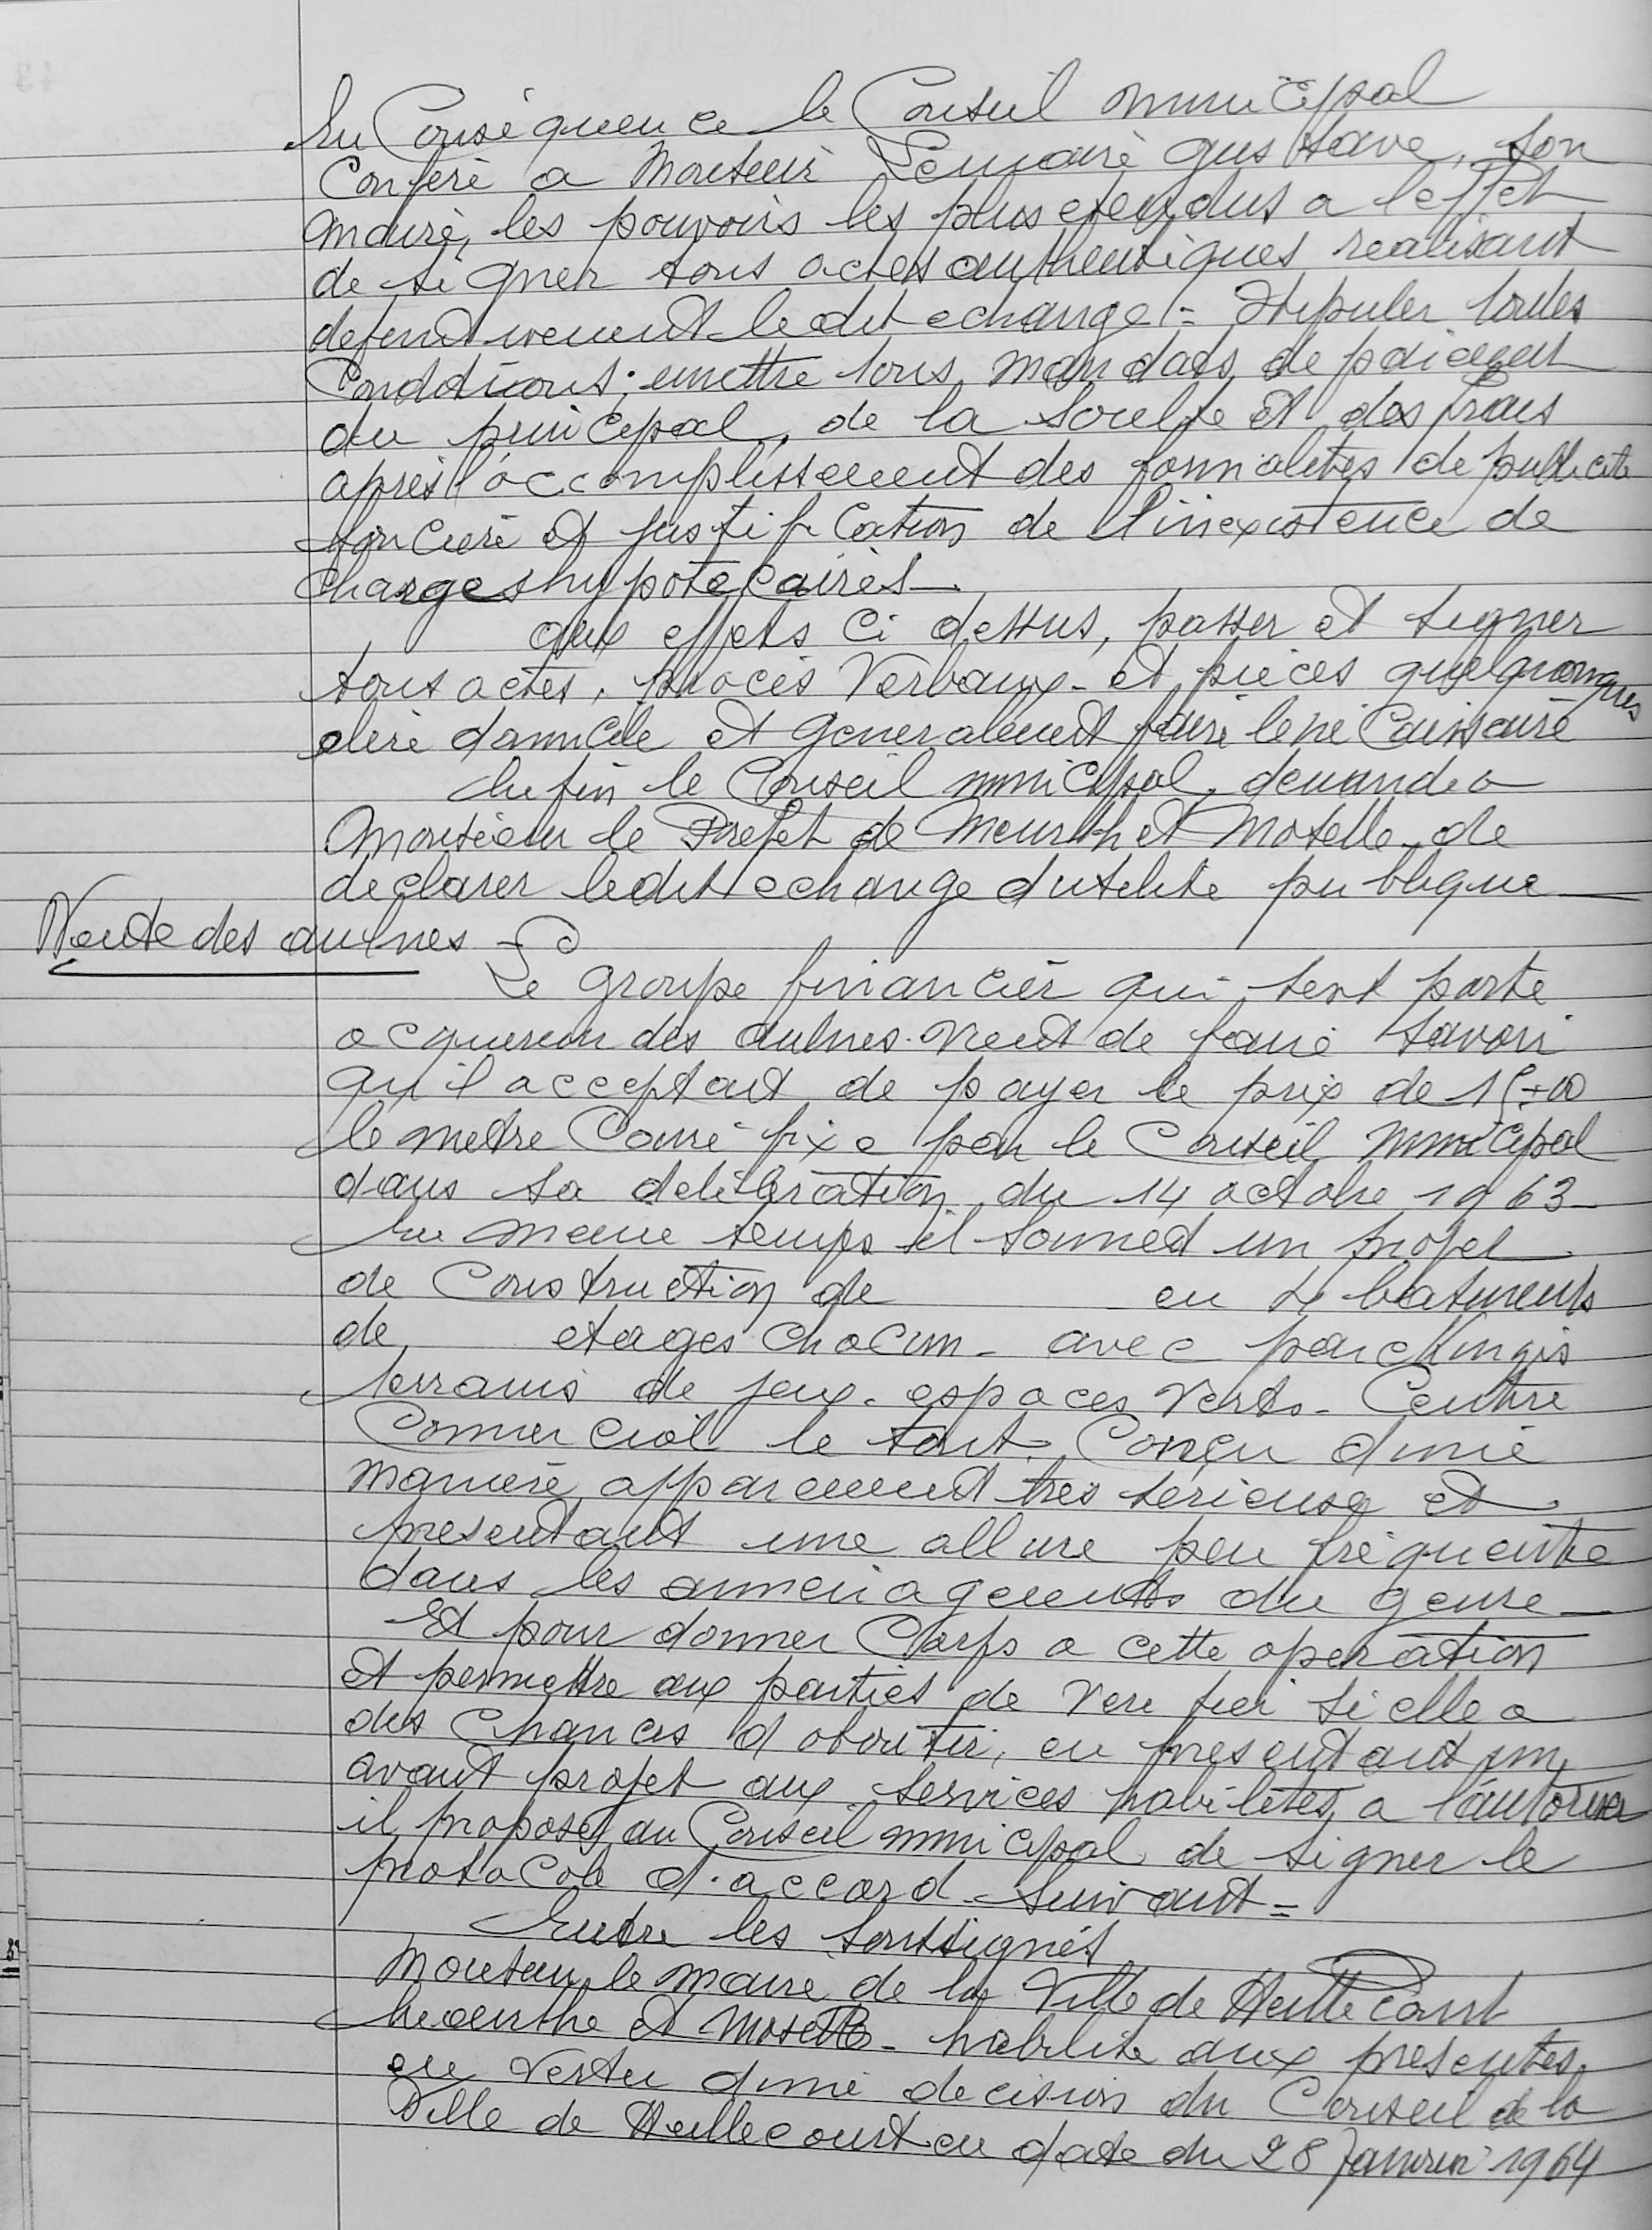 En Conséquence le Conseil municipal
Confère a Monsieur Lemaire gustave, son
maire, les pouvoirs les plus etendus a l'effet
de signer tous actes authentiques realisant
definitivement ledit echange = Stipuler toutes
Conditions; emettre tous mandats de paiement
du principal, de la soulte et des frais
après l'accomplissement des formalites de publicite
fonciere et justification de l'inexistence de
charges hypotecaires.
aux effets ci dessus, passer et signer
tous actes, procès Verbaux et pièces quelquonques
elire domicile et generalement faire le necaissaire
Enfin le Conseil municipal, demande a
Monsieur le Prefet de Meurth et Moselle de
declarer ledit echange d'utilite publique
Vente des aulnes
Le groupe financier qui sest porte
acquereur des aulnes vient de faire savoir
qu'il acceptait de payer le prix de 15,00
le metre Carre fixe par le Conseil municipal
dans sa deliberation du 14 octobre 1963
En meme temps il soumet un projet
de Construction de en batiments
de etages chacun avec parckings
terrains de jeux. espaces Verts. Centre
Commercial le tout Conçu d'une
maniere apparement tres serieuse et
presentant une allure peu frequente
dans les amenagements du genre
Et pour donner Corps a cette operation
et permettre aux parties de verifier si elle a
des chances d'aboutir, en presentant un
avant projet aux services habilites a l'autoriser
il propose au Conseil municipal de signer le
protocole d'accord suivant =
Entre les soussignés
Monsieur le maire de la Ville de Heillecourt
Meurthe et Moselle habilite aux presentes
en vertu d'une decision du Conseil de la
Ville de Heillecourt en date du 28 Janvier 1964